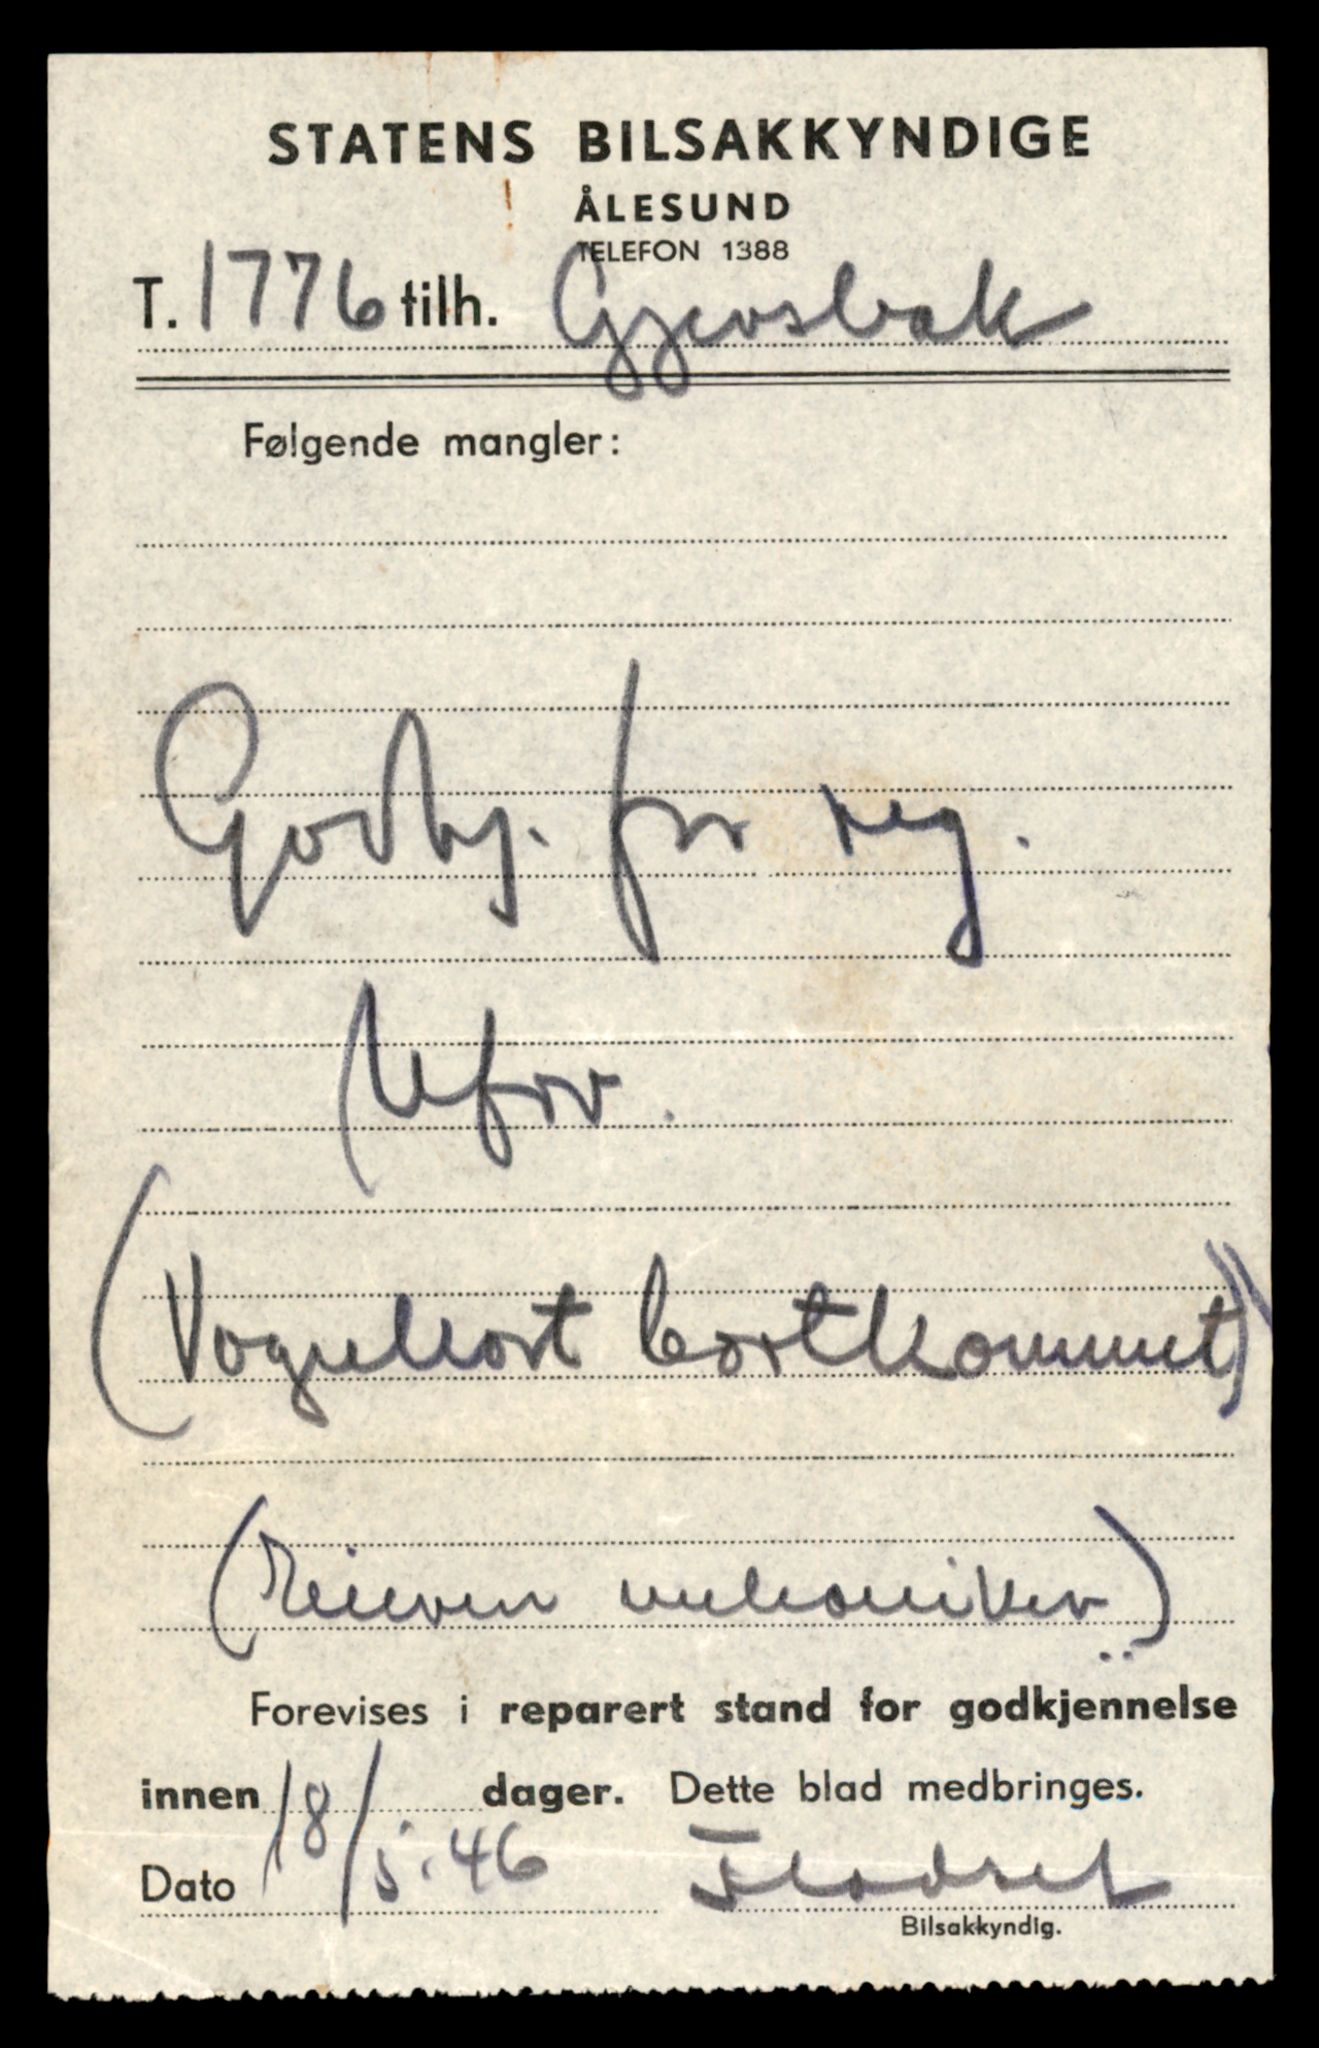 STATENS BILSAKKYNDIGE
ÅLESUND
TELEFON 1388
T. 1776 tilh. Gjevsbak
Følgende mangler:
Godkj. for reg.
(Vognkort bortkommet)
mekaniker)
Forevises i reparert stand for godkjennelse
innen dager. Dette blad medbringes.
Dato 18/5.46 Flodset
Bilsakkyndig.